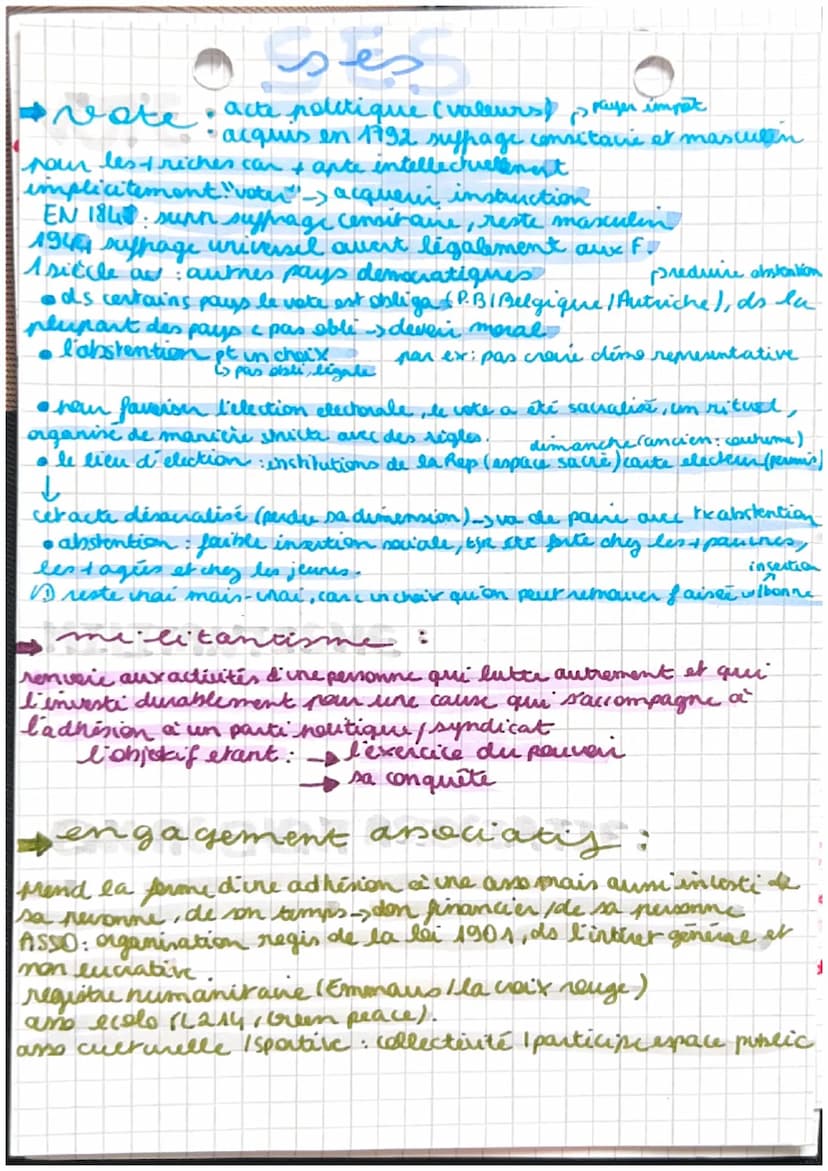 SES
→ vote : acte politique (valeurs) ↳ payer impôt
acquis en 1792 suffrage censitaire et masculin
pour les + riches car + apte intellectuellement
implicitement "voter" → acquérir instruction
EN 1848 : supr suffrage censitaire, reste masculin
1944 suffrage universel ouvert légalement aux F.
1 siècle av : autres pays democratiques
↱ reduire abstention
• ds certains pays le vote est obliga (P.B / Belgique / Autriche), ds la
plupart des pays c pas obli → devoir moral
• l'abstention pt un choix par ex : pas croire démo representative
↳ pas obli, légale
• pour favoriser l'élection electorale, le vote a été sacralisé, un rituel,
organisé de manière stricte avec des règles.
dimanche (ancien : coutume)
• le lieu d'élection : institutions de la Rep (espace sacré) carte electeur (permis)
↓
cet acte désacralisé (perdu sa dimension) → va de paire avec tx abstention
• abstention : faible insertion sociale, forte chez les + pauvres,
les + agés et chez les jeunes.
insertion
reste vrai mais-vrai, car c un choix qu'on peut retrouver bonne
→ militantisme :
renvoie aux activités d'une personne qui lutte autrement et qui
l'investi durablement pour une cause qui s'accompagne à
l'adhésion à un parti politique / syndicat
l'objektif etant : → l'exercice du pouvoir
→ sa conquête
→ engagement associatif :
prend la forme d'une adhésion à une asso mais aussi investi de
sa personne, de son temps → don financier / de sa personne
ASSO : organisation regis de la loi 1901, ds l'intêret général et
non lucrative.
registre humanitaire (Emmaus / la croix rouge)
asso ecolo (L214, Green peace).
asso culturelle / sportive : collectivité / participe espace public